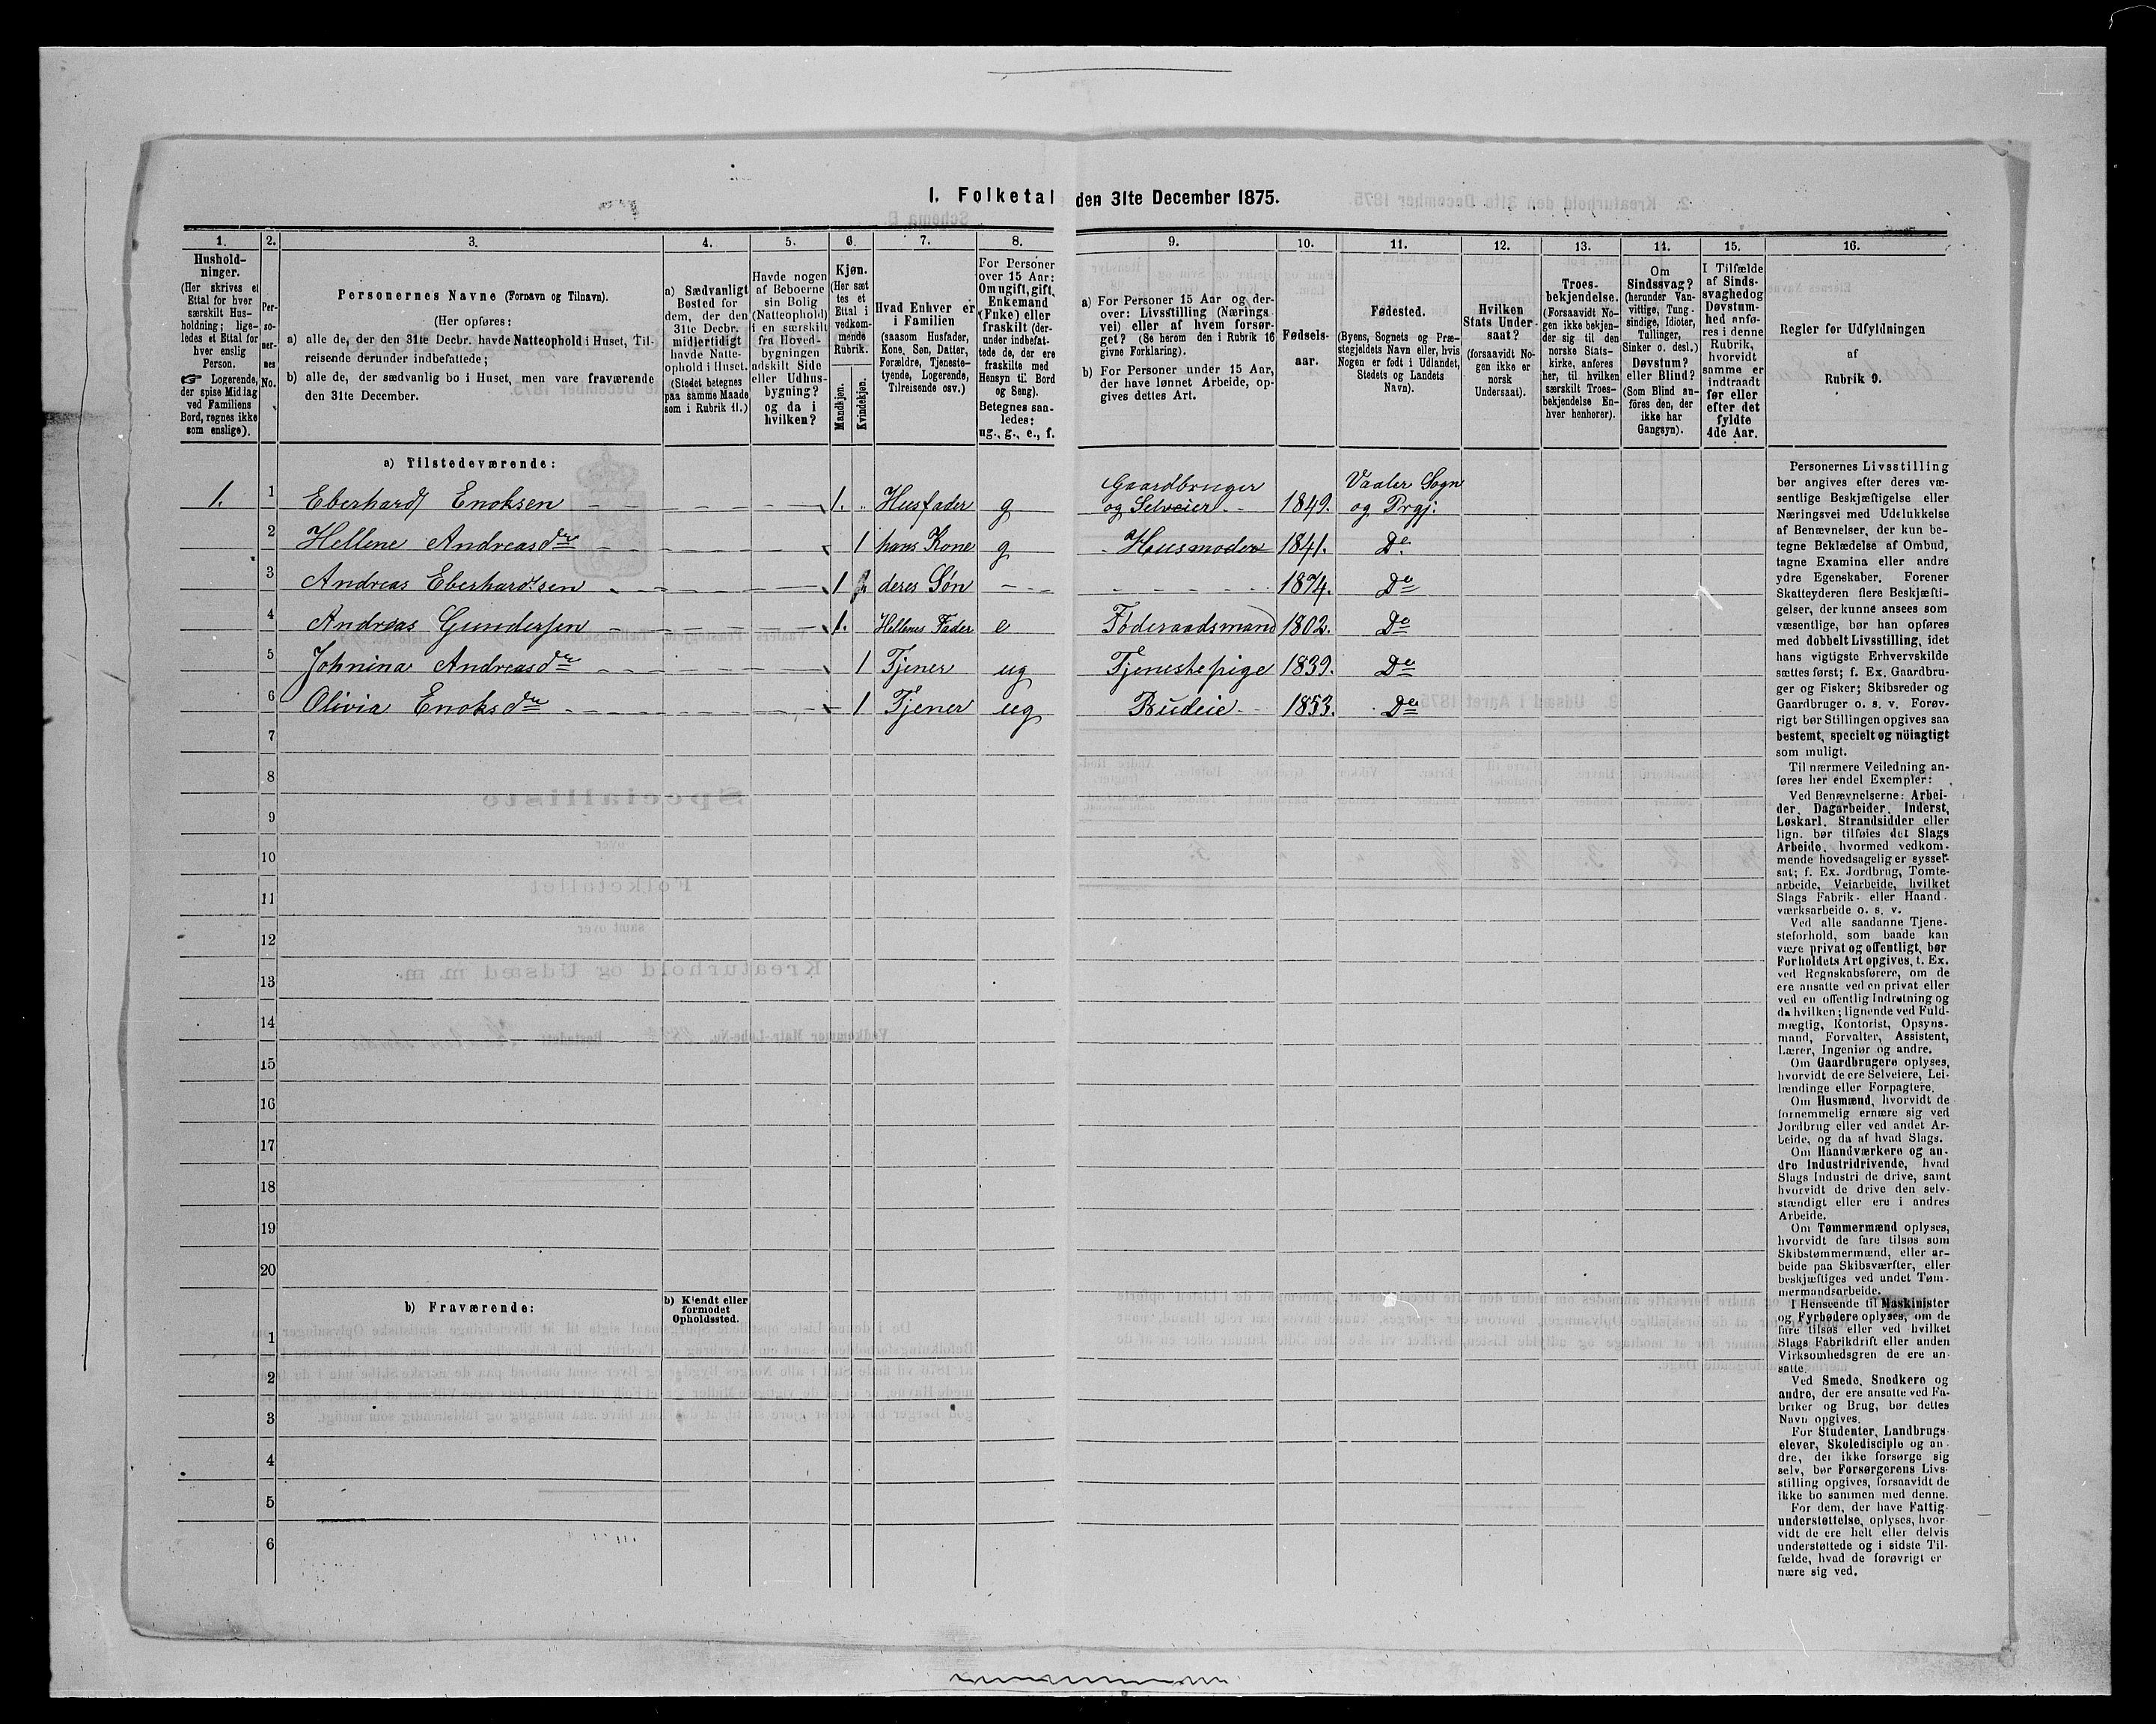 I. Folketal den 31te December 1875.
1. 2. 3. 4. 5. 6. 7. 8. 9. 10. 11. 12. 13. 14. 15. 16.
Hushold-
ninger.
(Her skrives et
Ettal for hver
særskilt Hus-
holdning; lige-
ledes et Ettal for
hver enslig
Person.
☞ Logerende,
der spise Middag
ved Familiens
Bord, regnes ikke
som enslige).
Per-
so-
ner-
nes
No.
Personernes Navne (Fornavn og Tilnavn).
(Her opføres:
a) alle de, der den 31te Decbr. havde Natteophold i Huset, Til-
reisende derunder indbefattede;
b) alle de, der sædvanlig bo i Huset, men vare fraværende
den 31te December.
a) Sædvanligt
Bosted for
dem, der den
31te Decbr.
midlertidigt
havde Natte-
ophold i Huset.
(Stedet betegnes
paa samme Maade
som i Rubrik 11.)
Havde nogen
af Beboerne
sin Bolig
(Natteophold)
i en særskilt
fra Hoved-
bygningen
adskilt Side
eller Udhus-
bygning?
og da i
hvilken?
Kjøn.
(Her sæt
tes et
Ettal i
vedkom-
mende
Rubrik.
Mandkjøn.
Kvindekjøn.
Hvad Enhver er
i Familien
(saasom Husfader,
Kone, Søn, Datter,
Forældre, Tjeneste-
tyende, Logerende,
Tilreisende osv.)
For Personer
over 15 Aar:
Om ugift, gift,
Enkemand
(Enke) eller
fraskilt (der-
under indbefat-
tede de, der ere
fraskilte med
Hensyn til Bord
og Seng).
Betegnes saa-
ledes:
ug., g., e., f.
a) For Personer 15 Aar og der-
over: Livsstilling (Nærings
vei) eller af hvem forsør-
get? (Se herom den i Rubrik 16
givne Forklaring).
b) For Personer under 15 Aar,
der have lønnet Arbeide, op-
gives dettes Art.
Fødsels-
aar.
Fødested.
(Byens, Sognets og Præ-
stegjeldets Navn eller, hvis
Nogen er født i Udlandet,
Stedets og Landets
Navn).
Hvilken
Stats Under-
saat?
(forsaavidt No-
gen ikke er
norsk
Undersaat).
Troes-
bekjendelse.
(Forsaavidt No-
gen ikke bekjen-
der sig til den
norske Stats-
kirke, anføres
her, til hvilken
særskilt Troes-
bekjendelse En-
hver henhører).
Om
Sindssvag?
(herunder Van-
vittige, Tung-
sindige, Idioter,
Tullinger,
Sinker o. desl.)
Døvstum?
eller Blind?
(Som Blind an-
föres den, der
ikke har
Gangsyn).
I Tilfælde
af Sinds-
svaghed og
Døvstum-
hed anfø-
res i denne
Rubrik,
hvorvidt
samme er
indtraadt
før eller
efter det
fyldte
4de Aar.
Regler for Udfyldningen
af
Rubrik 9.
a) Tilstedeværende:
1. 1 Eberhard Enoksen 1. Husfader g Gaardbruger og Selveier 1849. Vaaler Sogn og Prgj.
2 Hellene Andreasdtr 1 hans Kone g Husmoder 1841. Do
3 Andreas Eberhardsen 1 deres Søn 1874. Do
4 Andreas Gundersen 1. Hellenes Fader e Föderaadsmand 1802. Do
5 Johnina Andreasdtr 1 Tjener ug Tjenestepige 1839. Do
6 Olivia Enoksdtr 1 Tjener ug Budeie 1853. Do
7
8
9
10
11
12
13
14
15
16
17
18
19
20
b) Fraværende:
b) Kjendt eller
formodet
Opholdssted.
1
2
3
4
5
6
Personernes Livsstilling
bør angives efter deres væ-
sentlige Beskjæftigelse eller
Næringsvei med Udelukkelse
af Benævnelser, der kun be-
tegne Beklædelse af Ombud,
tagne Examina eller andre
ydre Egenskaber. Forener
Skatteyderen flere Beskjæfti-
gelser, der kunne ansees som
væsentlige, bør han opføres
med dobbelt Livsstilling, idet
hans vigtigste Erhvervskilde
sættes først; f. Ex. Gaardbru-
ger og Fisker; Skibsreder og
Gaardbruger o. s. v. Forøv-
rigt bør Stillingen opgives saa
bestemt, specielt og nöiagtigt
som muligt.
Til nærmere Veiledning an-
føres her endel Exempler:
Ved Benævnelserne: Arbei-
der, Dagarbeider, Inderst,
Løskarl, Strandsidder eller
lign. bør tilføies det Slags
Arbeide, hvormed vedkom-
mende hovedsagelig er syssel-
sat; f. Ex. Jordbrug, Tomte-
arbeide, Veiarbeide, hvilket
Slags Fabrik- eller Haand-
værksarbeide o. s. v.
Ved alle saadanne Tjene-
steforhold, som baade kan
være privat og offentligt, bør
Forholdets Art opgives, t. Ex.
ved Regnskabsførere, om de
ere ansatte ved en privat eller
ved en offentlig Indretning og
da hvilken; lignende ved Fuld-
mægtig, Kontorist, Opsyns-
mand, Forvalter, Assistent,
Lærer, Ingeniør og andre.
Om Gaardbrugere oplyses,
hvorvidt de ere Selveiere, Lei-
lændinge eller Forpagtere.
Om Husmænd, hvorvidt de
fornemmelig ernære sig ved
Jordbrug eller ved andet Ar-
beide, og da af hvad Slags.
Om Haandværkere og an-
dre Industridrivende, hvad
Slags Industri de drive, samt
hvorvidt de drive den selv-
stændigt eller ere i andres
Arbeide.
Om Tømmermænd oplyses,
hvorvidt de fare tilsøs som
Skibstømmermænd, eller ar-
beide paa Skibsværfter, eller
beskjæftiges ved andet Tøm-
mermandsarbeide.
I Henseende til Maskinister
og Fyrbødere oplyses, om de
fare tilsøs eller ved hvilket
Slags Fabrikdrift eller anden
Virksomhedsgren de ere an-
satte.
Ved Smede, Snedkere og
andre, der ere ansatte ved Fa-
briker og Brug, bør dettes
Navn opgives.
For Studenter, Landbrugs-
elever, Skoledisciple og an-
dre, der ikke forsørge sig
selv, bør Forsørgerens Livs-
stilling opgives, forsaavidt de
ikke bo sammen med denne.
For dem, der have Fattig-
understøttelse, oplyses, hvor-
vidt de ere helt eller delvis
understøttede og i sidste Til-
fælde, hvad de forøvrigt er
nære sig ved.